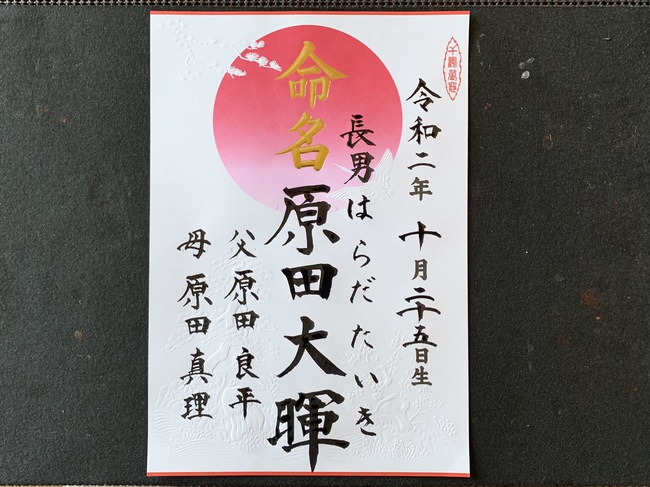 令和二年 十月二十五日生
長男 はらだたいき
命名 原田大暉
父 原田 良平
母 原田 真理